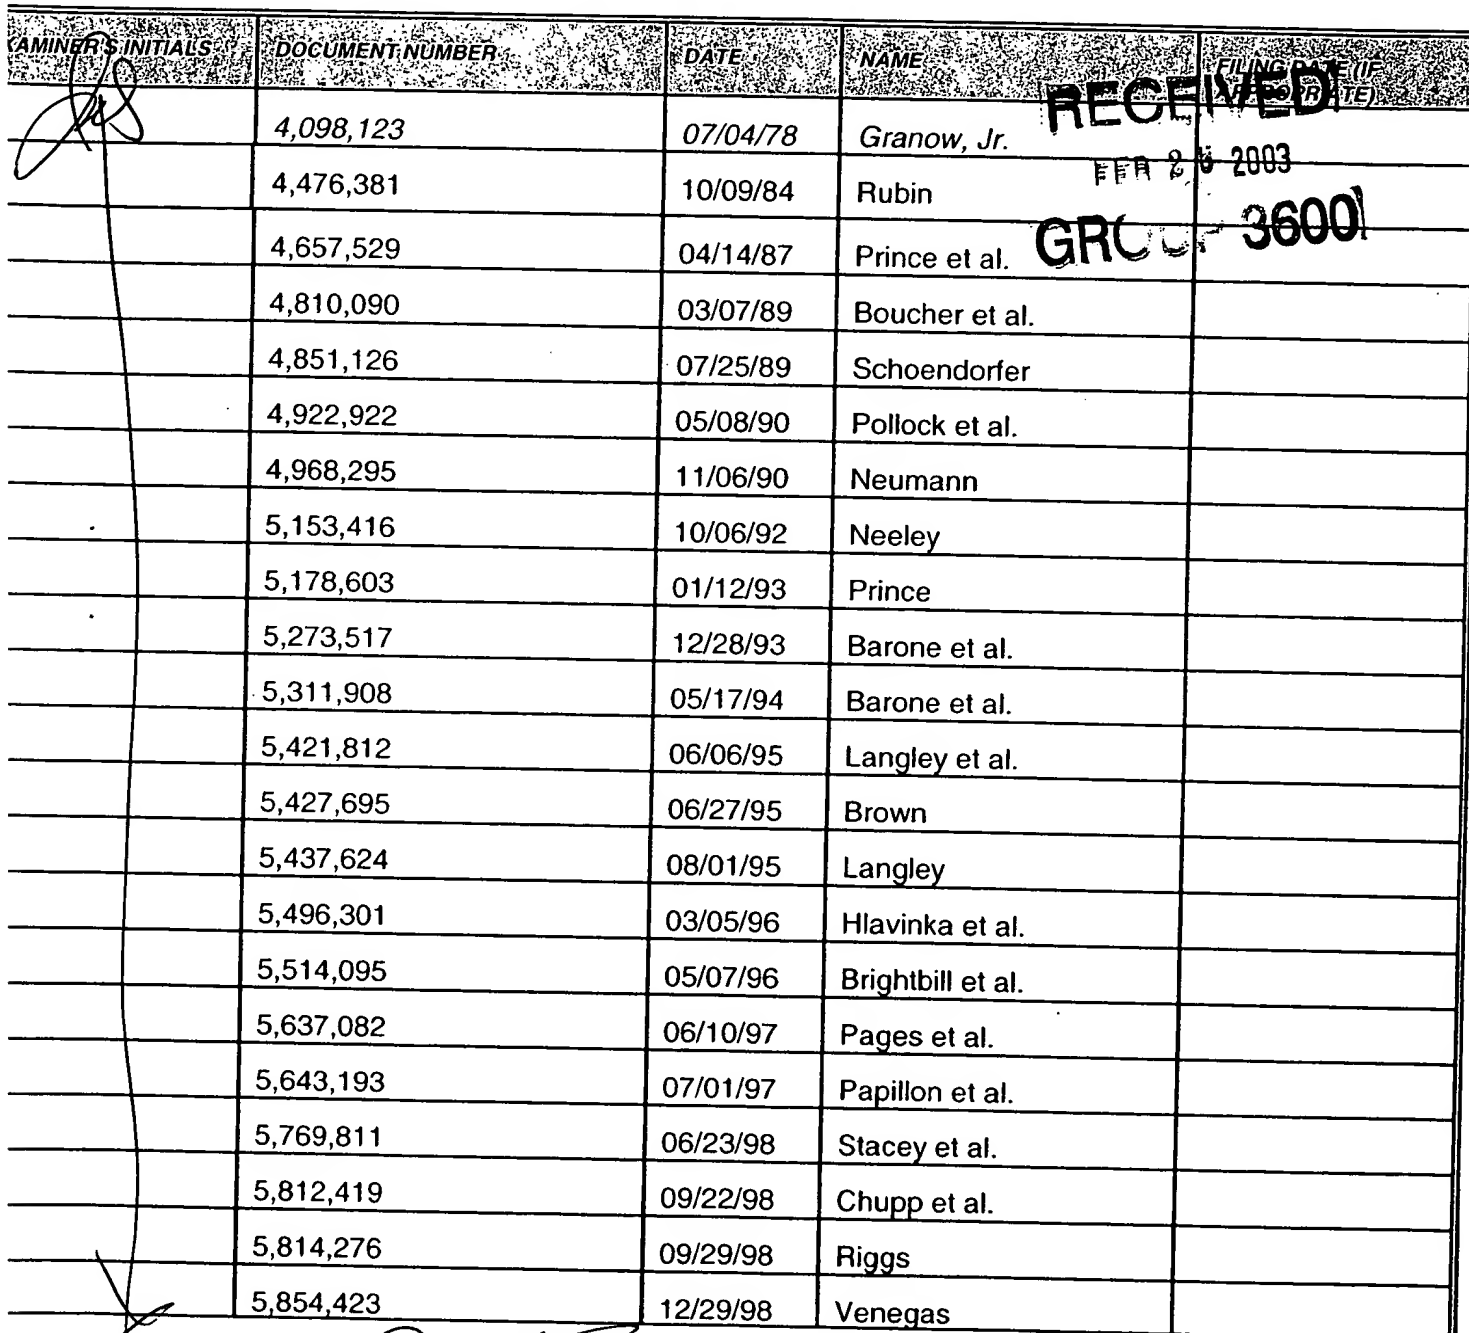 XAMINER'S INITIALS DOCUMENT NUMBER DATE NAME FILING DATE (IF APPROPRIATE)
RECEIVED
4,098,123 07/04/78 Granow, Jr.
2003
4,476,381 10/09/84 Rubin
GROUP 3600
4,657,529 04/14/87 Prince et al.
4,810,090 03/07/89 Boucher et al.
4,851,126 07/25/89 Schoendorfer
4,922,922 05/08/90 Pollock et al.
4,968,295 11/06/90 Neumann
5,153,416 10/06/92 Neeley
5,178,603 01/12/93 Prince
5,273,517 12/28/93 Barone et al.
5,311,908 05/17/94 Barone et al.
5,421,812 06/06/95 Langley et al.
5,427,695 06/27/95 Brown
5,437,624 08/01/95 Langley
5,496,301 03/05/96 Hlavinka et al.
5,514,095 05/07/96 Brightbill et al.
5,637,082 06/10/97 Pages et al.
5,643,193 07/01/97 Papillon et al.
5,769,811 06/23/98 Stacey et al.
5,812,419 09/22/98 Chupp et al.
5,814,276 09/29/98 Riggs
5,854,423 12/29/98 Venegas